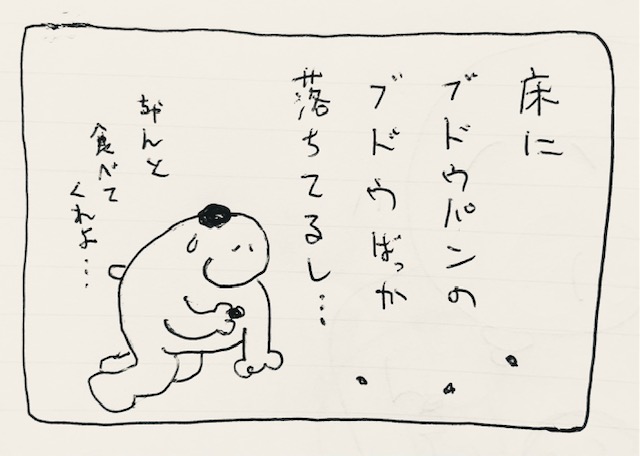 床に
ブドウパンの
ブドウばっか
落ちてるし…
ちゃんと
食べて
くれよ…